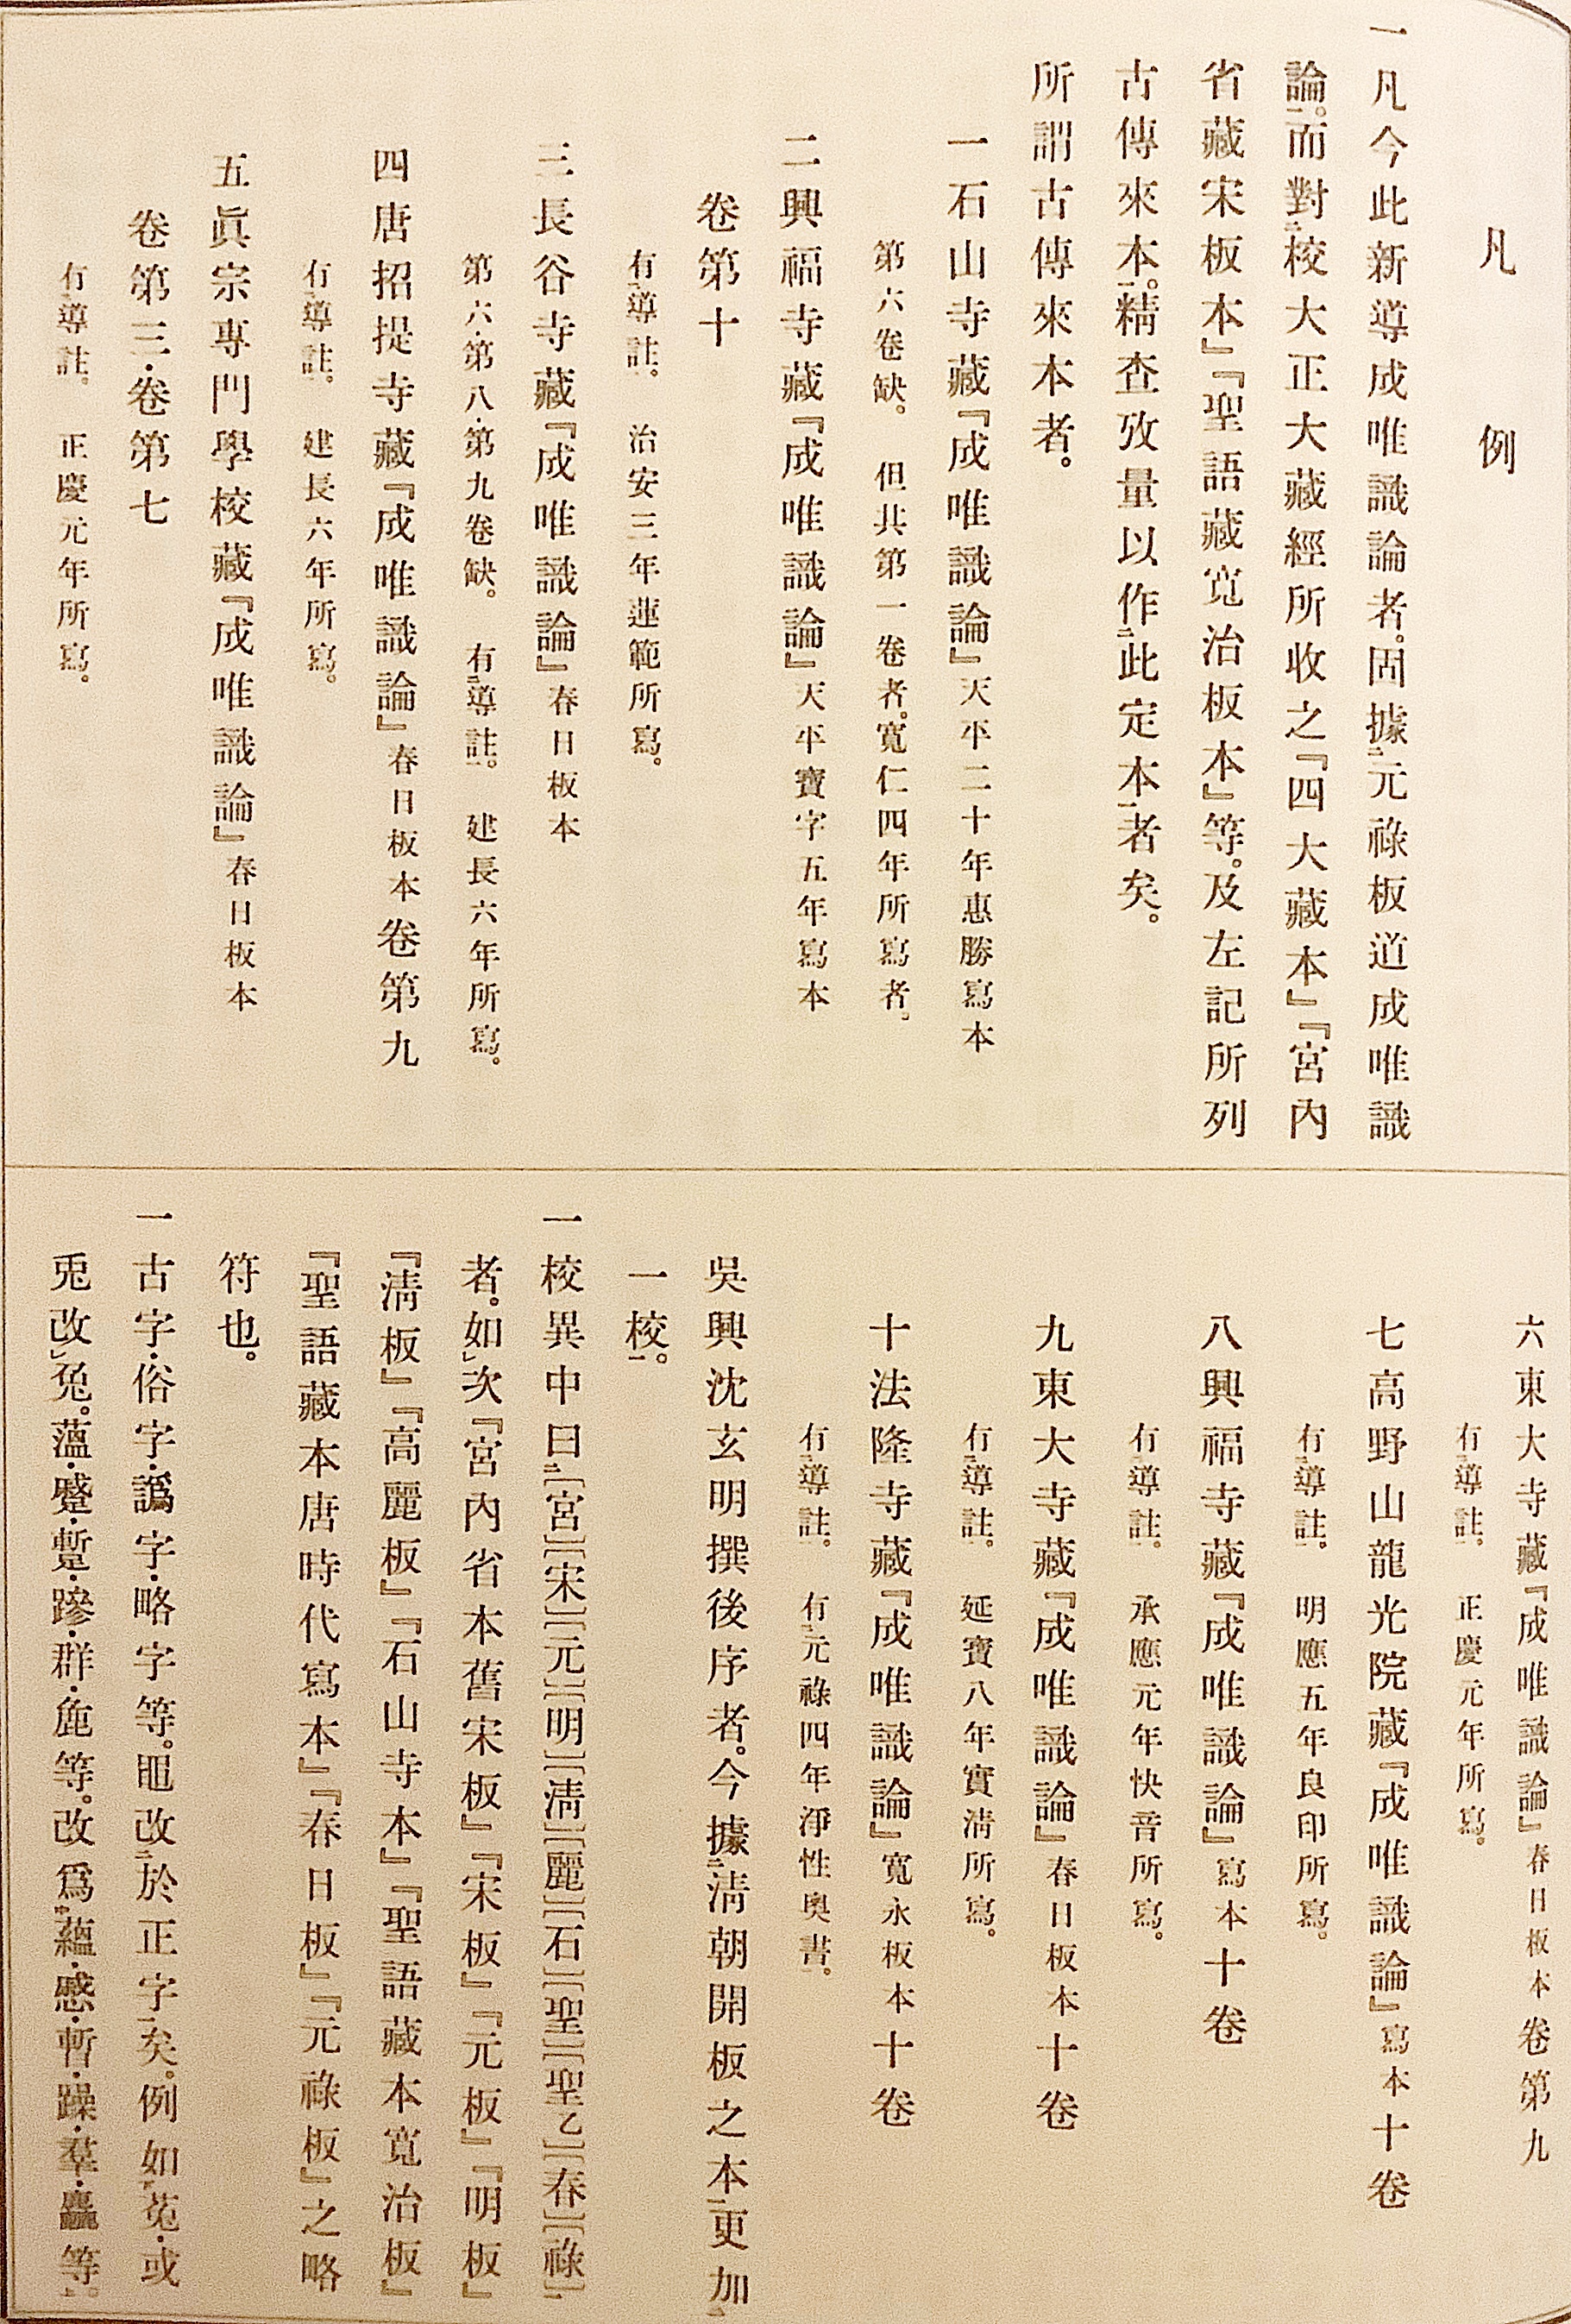 凡例
一凡今此新導成唯識論者。固據㆓元祿板道成唯識
論㆒。而對㆓校大正大藏經所收之『四大藏本』『宮內
省藏宋板本』『聖語藏寬治板本』等。及左記所列
古傳來本㆒。精査攷量以作㆓此定本㆒者矣。
所謂古傳來本者。
一石山寺藏『成唯識論』天平二十年惠勝寫本
第六卷缺。但其第一卷者。寬仁四年所寫者。
二興福寺藏『成唯識論』天平寶字五年寫本
卷第十
有㆓導註㆒。治安三年蓮範所寫。
三長谷寺藏『成唯識論』春日板本
第六・第八・第九卷缺。有㆓導註㆒。建長六年所寫。
四唐招提寺藏『成唯識論』春日板本卷第九
有㆓導註㆒。建長六年所寫。
五眞宗專門學校藏『成唯識論』春日板本
卷第三・卷第七
有㆓導註㆒。正慶元年所寫。
六東大寺藏『成唯識論』春日板本卷第九
有㆓導註㆒。正慶元年所寫。
七高野山龍光院藏『成唯識論』寫本十卷
有㆓導註㆒。明應五年良印所寫。
八興福寺藏『成唯識論』寫本十卷
有㆓導註㆒。承應元年快音所寫。
九東大寺藏『成唯識論』春日板本十卷
有㆓導註㆒。延寶八年實淸所寫。
十法隆寺藏『成唯識論』寬永板本十卷
有㆓導註㆒。有㆓元祿四年淨性奧書㆒。
吳興沈玄明撰後序者。今據㆓淸朝開板之本㆒更加㆓
一校㆒。
一校異中曰㆓[宮][宋][元][明][淸][麗][石][聖][聖乙][春][祿]㆒
者。如㆑次『宮內省本舊宋板』『宋板』『元板』『明板』
『淸板』『高麗板』『石山寺本』『聖語藏本寬治板』
『聖語藏本唐時代寫本』『春日板』『元祿板』之略
符也。
一古字・俗字・譌字・略字等。咀改㆓於正字㆒矣。例如㆘菟・或
兎改㆑兔。薀・蹙・蹔・蹘・群・麁等。改爲㆗蘊・慼・暫・躁・羣・麤等㆖。